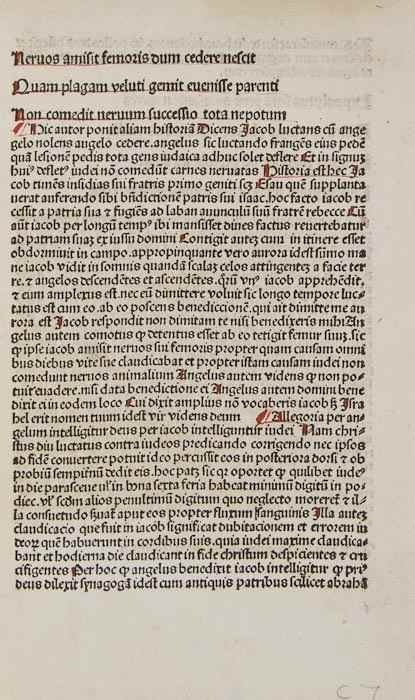 Neruos amisit femoris dum cedere nescit
Quam plagam veluti gemit euenisse parenti
Non comedit neruum successio tota nepotum
Hic autor ponit aliam historiā Dicens Jacob luctans cū ange
gelo nolens angelo cedere. angelus sic luctando frangēs eius pedē
quā lesionē pedis tota gens iudaica adhuc solet deflere Et in signū
huiꝰ defletꝰ iudei nō comedūt carnes neruatas Historia est hec Ja
cob timēs insidias sui fratris primo geniti scꝫ Esau quē supplanta
uerat auferendo sibi bn̄dictionē patris sui isaac. hoc facto iacob re
cessit a patria sua ⁊ fugiēs ad laban auunculū suū fratrē rebecce Cū
aūt iacob per longū tempꝰ ibi mansisset diues factus reuertebatur
ad patriam suaꝫ ex iussu domini Contigit auteꝫ cum in itinere esset
obdormiuit in campo. appropinquante vero aurora id est sūmo ma
ne iacob vidit in somnis quandā scalaꝫ celos attingenteꝫ a facie ter
re. ⁊ angelos descendētes et ascendētes. qrū vnꝰ iacob apprehēdit,
⁊ eum amplexus est. nec eū dimittere voluit sic longo tempore luc⸗
tatus est cum eo. ab eo poscens benediccionē. qui ait dimitte me au
rora est Jacob respondit non dimitam te nisi benedixeris mihi An
gelus autem comotus ꝙ detentus esset ab eo tetigit femur suuꝫ. sic
ꝙ ipse iacob amisit neruos sui femoris propter quam causam omni
bus diebus vite sue claudicabat et propter istam causam iudei non
comedunt neruos animalium Angelus autem videns ꝙ non po⸗
tuit euadere. nisi data benedictione ei Angelus autem domini bene
dixit ei in eodem loco Cui dixit amplius nō vocaberis iacob sꝫ Isra
hel erit nomen tuum id est vir videns deum Allegoria per an
gelum intelligitur deus per iacob intelliguntur iudei Nam chri⸗
stus diu luctatus contra iudeos predicando corrigendo nec ipsos
ad fidē conuertere potuit ideo percussit eos in posteriora dorsi ⁊ ob
probiū sempiternū dedit eis. hoc patꝫ sic qꝛ oportet ꝙ quilibet iudeꝰ
in die parasceue vl' in bona sexta feria habeat minimū digitū in po⸗
diec. vl' scdm alios penultimū digitum quo neglecto moreret ⁊ il⸗
la consuetudo
Illa auteꝫ
claudicacio que fuit in iacob significat dubitacionem et errorem iu
deoꝝ quē habuerunt in cordibus suis. quia iudei maxime claudica⸗
bant et hodierna die claudicant in fide christum despicientes ⁊ cru
cifigentes Per hoc ꝙ angelus benedixit iacob intelligitur ꝙ priꝰ
deus dilexit synagogā id est cum antiquis patribus scilicet abrahā
C 7